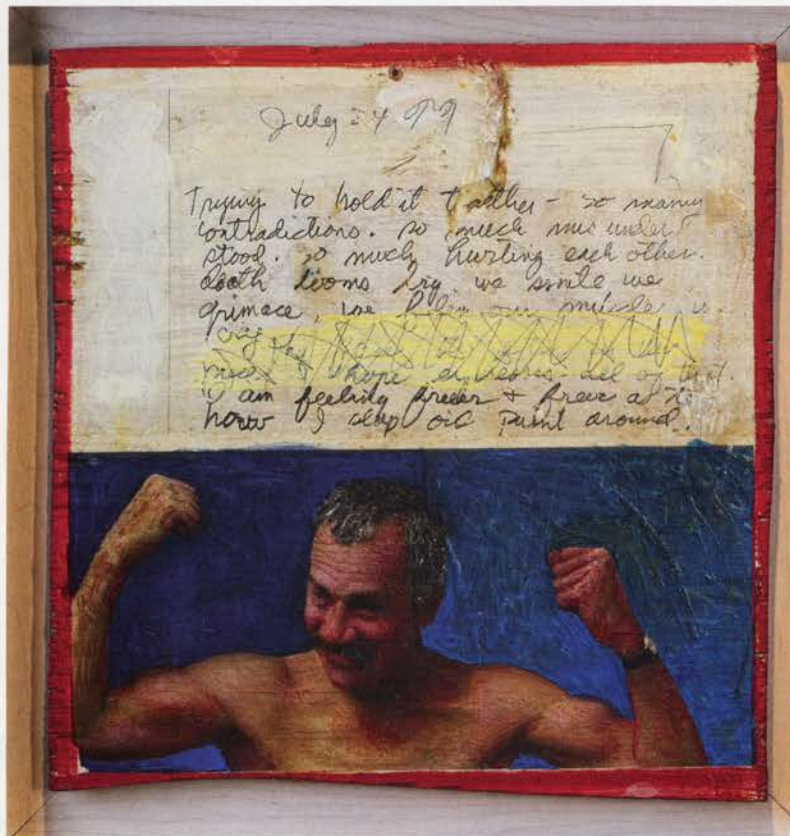 July 24 99
Trying to hold it together - so many
contradictions. so much mis under
stood. so much hurting each other.
death looms big. we smile we
grimace, we flex our muscles
cry
hope embraces all of
I am feeling freer & freer as to
how I slap oil paint around.